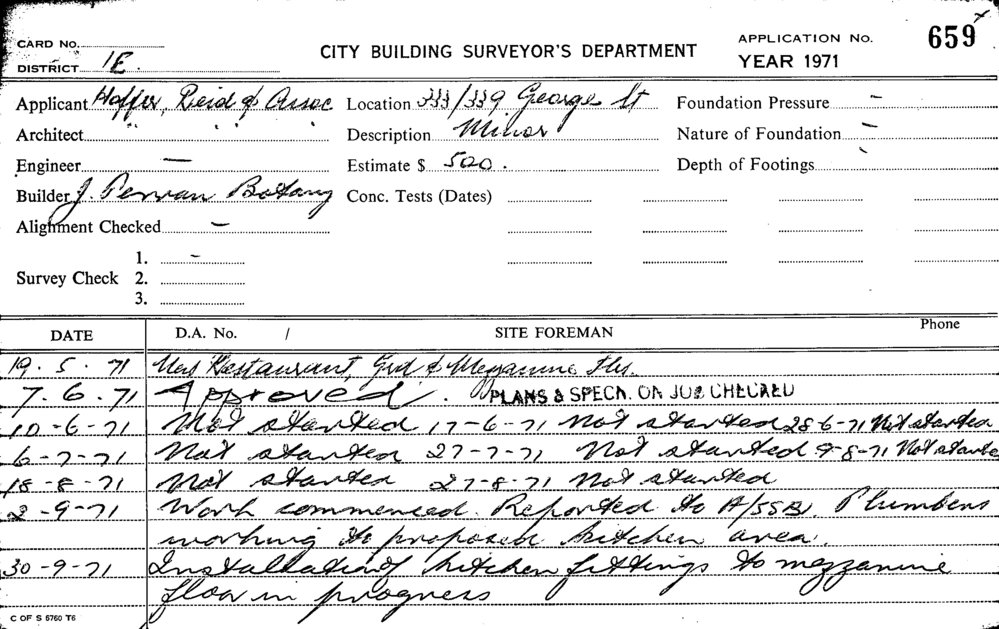 CARD No.
DISTRICT 1E.
CITY BUILDING SURVEYOR'S DEPARTMENT
APPLICATION No. 659
YEAR 1971
Applicant Hoffer, Reid & Assoc
Location 333/339 George St
Foundation Pressure –
Architect " " "
Description Minor
Nature of Foundation –
Engineer –
Estimate $ 500.
Depth of Footings
Builder J. Perwan Botany
Conc. Tests (Dates)
Alignment Checked –
Survey Check 1. –
2.
3.
DATE D.A. No. / SITE FOREMAN Phone
19.5.71 Restaurant, Grd & Mezzanine Flrs.
7.6.71 Approved. PLANS & SPECN. ON JOB CHECKED
10-6-71 Not started 17-6-71 Not started 28-6-71 Not started
6-7-71 Not started 27-7-71 Not started 9-8-71 Not started
18-8-71 Not started 27-8-71 Not started
2-9-71 Work commenced. Reported to A/SSB. Plumbers
working to proposed kitchen area.
30-9-71 Installation of kitchen fittings to mezzanine
floor in progress
C OF S 6760 T6